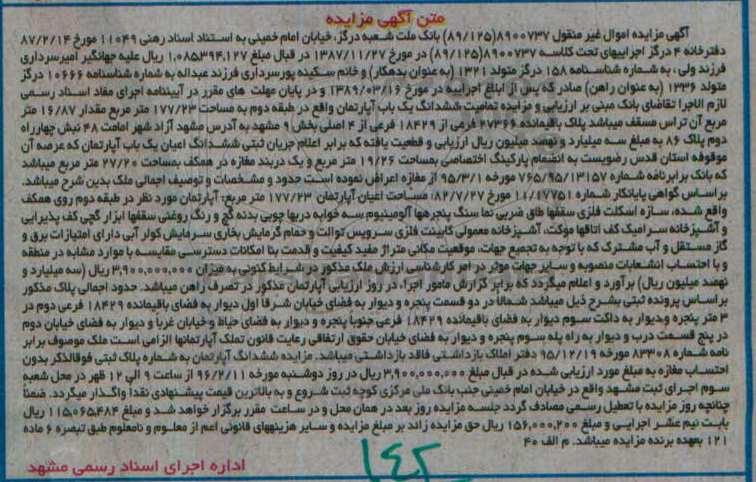 متن آگهی مزایده
آگهی مزایده اموال غیر منقول ۸۹۰۰۷۳۷(۸۹/۱۲۵) بانک ملت شعبه درگز، خیابان امام خمینی به استناد اسناد رهنی ۱۱۰۴۹ مورخ ۸۷/۲/۱۴
دفترخانه ۴ درگز اجراییهای تحت کلاسه ۸۹۰۰۷۳۷(۸۹/۱۲۵) در مورخ ۱۳۸۷/۱۱/۲۷ در قبال مبلغ ۱,۰۸۵,۳۹۴,۱۲۷ ریال علیه جهانگیر امیرسرداری
فرزند ولی، به شماره شناسنامه ۱۵۸ درگز متولد ۱۳۲۱ (به عنوان بدهکار) و خانم سکینه پورسرداری فرزند عبداله به شماره شناسنامه ۱۰۶۶۶ درگز
متولد ۱۳۳۶ (به عنوان راهن) صادر که پس از ابلاغ اجراییه در مورخ ۱۳۸۹/۰۳/۱۶ و در پایان مهلت های مقرر در آیینامه اجرای مفاد اسناد رسمی
لازم الاجرا تقاضای بانک مبنی بر ارزیابی و مزایده تمامیت ششدانگ یک باب آپارتمان واقع در طبقه دوم به مساحت ۱۷۷/۲۳ متر مربع مقدار ۱۶/۸۷ متر
مربع آن تراس مسقف میباشد پلاک باقیمانده ۲۷۳۶۶ فرعی از ۱۸۴۲۹ فرعی از ۴ اصلی بخش ۹ مشهد به آدرس مشهد آزاد شهر امامت ۴۸ نبش چهارراه
دوم پلاک ۸۶ به مبلغ سه میلیارد و نهصد میلیون ریال ارزیابی و قطعیت یافته که برابر اعلام جریان ثبتی ششدانگ اعیان یک باب آپارتمان که عرصه آن
موقوفه استان قدس رضویست به انضمام پارکینگ اختصاصی بمساحت ۱۹/۲۶ متر مربع و یک دربند مغازه در همکف بمساحت ۲۷/۲۰ متر مربع میباشد
که بانک برابرنامه شماره ۷۶۵/۹۵/۱۳۱۵۷ مورخه ۹۵/۳/۱ از مغازه اعراض نموده است حدود و مشخصات و توصیف اجمالی ملک بدین شرح میباشد.
براساس گواهی پایانکار شماره ۱۱/۱۷۷۵۱ مورخ ۸۲/۷/۲۷: مساحت اعیان آپارتمان ۱۷۷/۲۳ متر مربع: آپارتمان مورد نظر در طبقه دوم روی همکف
واقع شده، سازه اسکلت فلزی سقفها طاق ضربی نما سنگ پنجرهها آلومینیوم سه خوابه دربها چوبی بدنه گچ و رنگ روغنی سقفها ابزار گچی کف پذیرایی
و آشپزخانه سرامیک کف اتاقها موکت، آشپزخانه معمولی کابینت فلزی سرویس توالت و حمام گرمایش بخاری سرمایش کولر آبی دارای امتیازات برق و
گاز مستقل و آب مشترک که با توجه به تجمیع جهات، موقعیت مکانی متراژ مفید کیفیت و قدمت بنا امکانات دسترسی مقایسه با موارد مشابه در منطقه
و با احتساب انشعابات منصوبه و سایر جهات موثر در امر کارشناسی ارزش ملک مذکور در شرایط کنونی به میزان ۳,۹۰۰,۰۰۰,۰۰۰ ریال (سه میلیارد و
نهصد میلیون ریال) برآورد و اعلام میگردد که برابر گزارش مامور اجرا، در روز ارزیابی آپارتمان مذکور در تصرف راهن میباشد. حدود اجمالی پلاک مذکور
براساس پرونده ثبتی بشرح ذیل میباشد شمالا در دو قسمت پنجره و دیوار به فضای خیابان شرقا اول دیوار به فضای باقیمانده ۱۸۴۲۹ فرعی دوم در
۳ متر پنجره ودیوار به داکت سوم دیوار به فضای باقیمانده ۱۸۴۲۹ فرعی جنوبا پنجره و دیوار به فضای حیاط وخیابان غربا و دیوار به فضای خیابان دوم
در پنج قسمت درب و دیوار به راه پله سوم پنجره و دیوار به فضای خیابان حقوق ارتفاقی رعایت قانون تملک آپارتمانها الزامی است ملک موصوف برابر
نامه شماره ۸۳۳۰۸ مورخه ۹۵/۱۲/۱۹ دفتر املاک بازداشتی فاقد بازداشتی میباشد. مزایده ششدانگ آپارتمان به شماره پلاک ثبتی فوقالذکر بدون
احتساب مغازه به مبلغ مورد ارزیابی شده در قبال مبلغ ۳,۹۰۰,۰۰۰,۰۰۰ ریال در روز دوشنبه مورخه ۹۶/۲/۱۱ از ساعت ۹ الی ۱۲ ظهر در محل شعبه
سوم اجرای ثبت مشهد واقع در خیابان امام خمینی جنب بانک ملی مرکزی کوچه ثبت شروع و به بالاترین قیمت پیشنهادی نقدا واگذار میگردد. ضمنا
چنانچه روز مزایده با تعطیل رسمی مصادف گردد جلسه مزایده روز بعد در همان محل و در ساعت مقرر برگزار خواهد شد و مبلغ ۱۱۵,۰۶۵,۴۸۴ ریال
بابت نیم عشر اجرایی و مبلغ ۱۵۶,۰۰۰,۲۰۰ ریال حق مزایده زائد بر مبلغ مزایده و سایر هزینههای قانونی اعم از معلوم و نامعلوم طبق تبصره ۶ ماده
۱۲۱ بعهده برنده مزایده میباشد. م الف ۴۰
اداره اجرای اسناد رسمی مشهد
۱۴۲